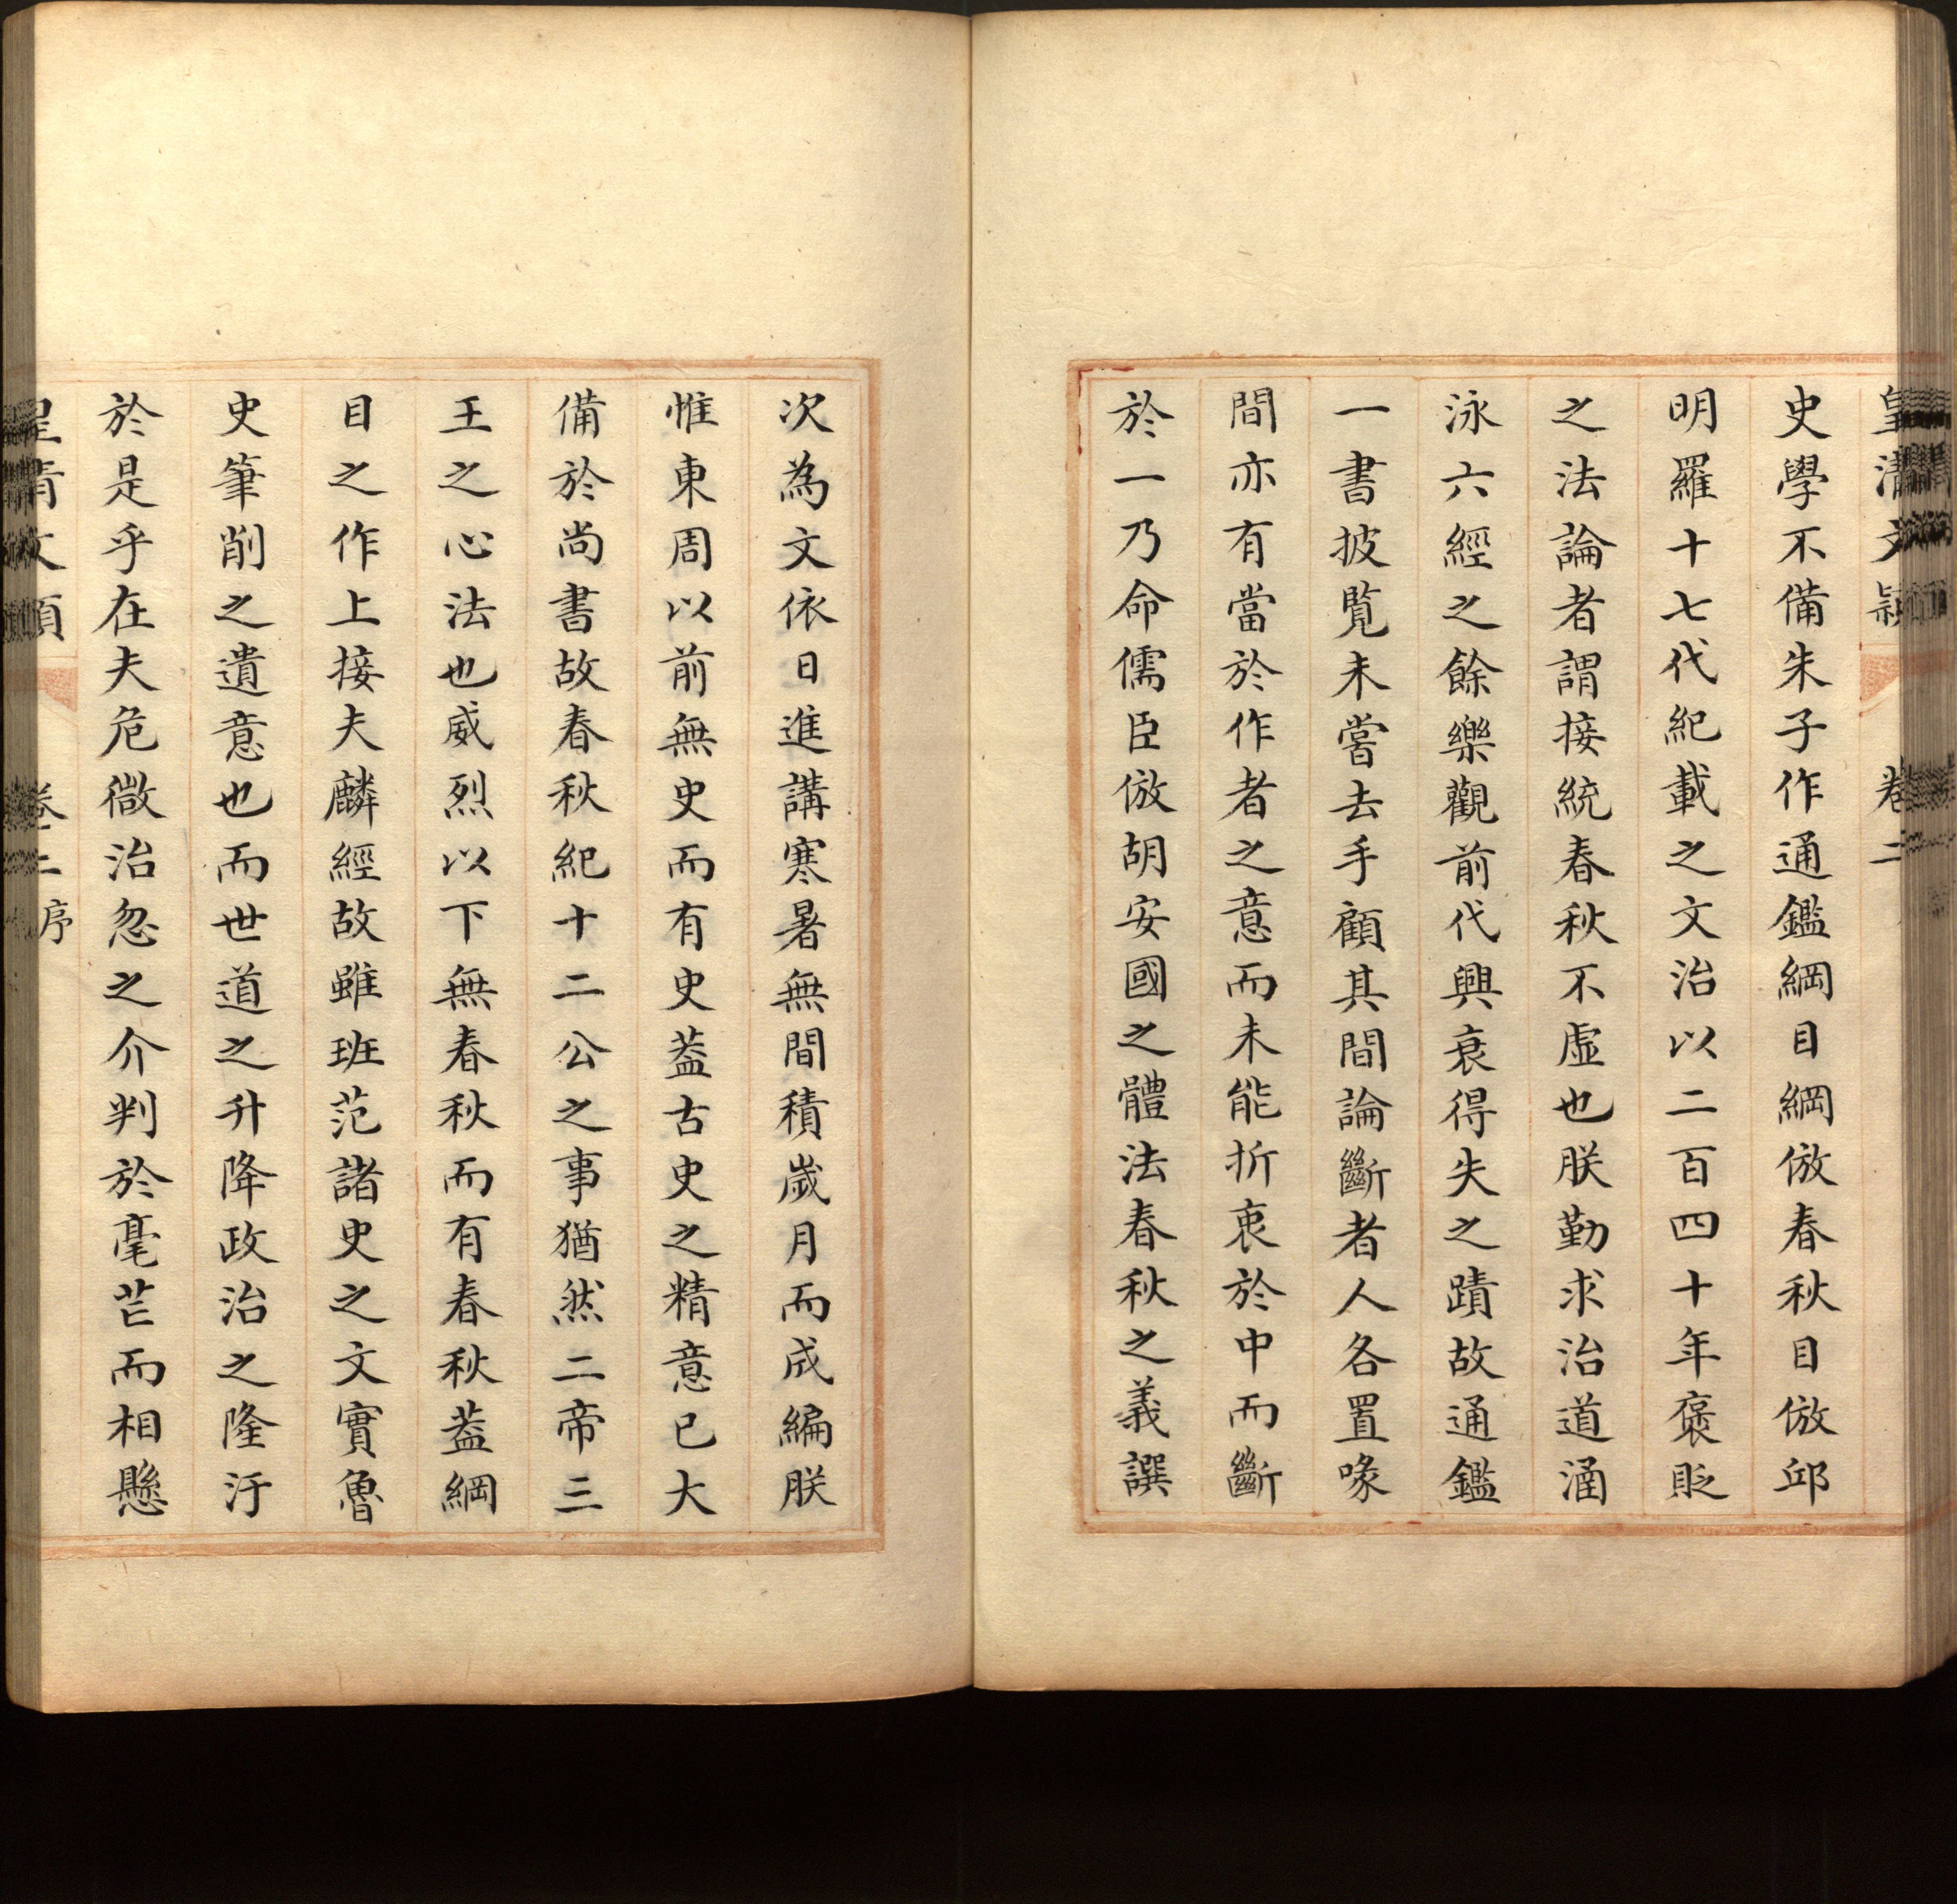 皇清文穎　卷二
史學不備朱子作通鑑綱目綱倣春秋目倣邱
明羅十七代紀載之文治以二百四十年褒貶
之法論者謂接統春秋不虛也朕勤求治道涵
泳六經之餘樂觀前代興衰得失之蹟故通鑑
一書披覽未嘗去手顧其間論斷者人各置喙
間亦有當於作者之意而未能折衷於中而斷
於一乃命儒臣倣胡安國之體法春秋之義譔
次為文依日進講寒暑無間積歲月而成編朕
惟東周以前無史而有史葢古史之精意已大
備於尚書故春秋紀十二公之事猶然二帝三
王之心法也威烈以下無春秋而有春秋葢綱
目之作上接夫麟經故雖班范諸史之文實魯
史筆削之遺意也而世道之升降政治之隆汙
於是乎在夫危微治忽之介判於毫芒而相懸
皇清文穎　卷二 序